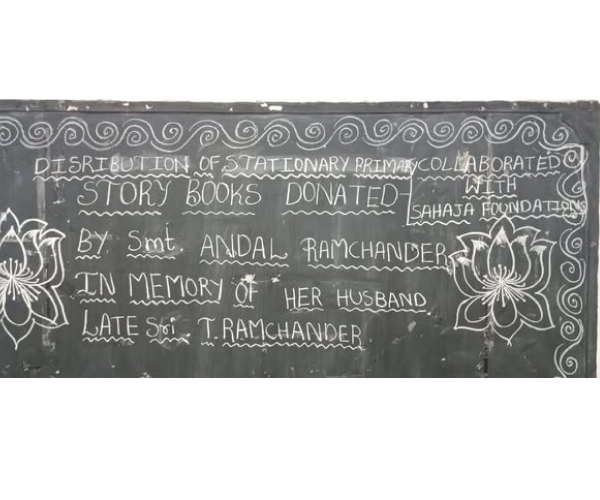 DISRIBUTION OF STATIONARY PRIMARY COLLABORATED
WITH
SAHAJA FOUNDATIONS
STORY BOOKS DONATED
BY Smt. ANDAL RAMCHANDER
IN MEMORY OF HER HUSBAND
LATE Sri. T. RAMCHANDER